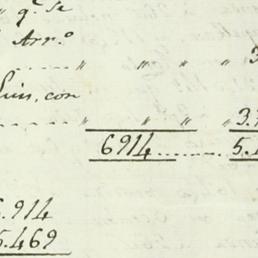 " q.e se
Arr.o
" " " " 3
Luis, con
" " " " 3.
6914 5.
.914
5.469